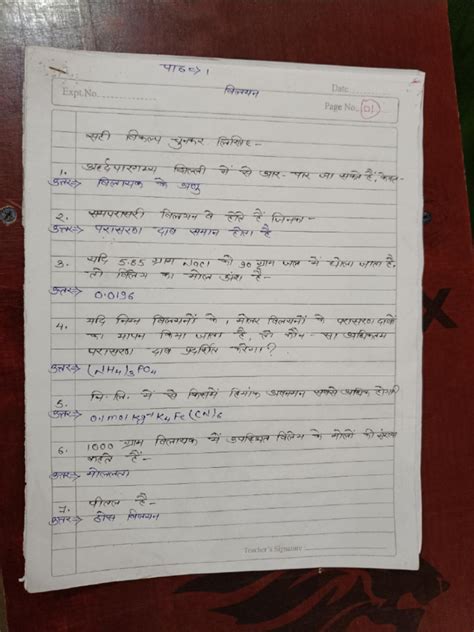 पाठ⇒ 1
Expt.No. विलयन Date
Page No. 01
सही विकल्प चुनकर लिखिए -
1. अर्द्धपारगम्य झिल्ली में से आर-पार जा सकते हैं, केवल-
उत्तर⇒ विलायक के अणु
2. समपरासरी विलयन वे होते हैं जिनका -
उत्तर⇒ परासरण दाब समान होता है
3. यदि 5.85 ग्राम NaCl को 90 ग्राम जल में घोला जाता है,
तो विलेय का मोल अंश है -
उत्तर⇒ 0.0196
4. यदि निम्न विलयनों के, मोलर विलयनों के परासरण दाबों
का मापन किया जाता है, तो कौन-सा अधिकतम
परासरण दाब प्रदर्शित करेगा?
उत्तर⇒ (NH4)3PO4
5. नि. लि. में से किसमें हिमांक अवनमन सबसे अधिक होगा
उत्तर⇒ 0.1 mol Kg-1 K4Fe(CN)6
6. 1000 ग्राम विलायक में उपस्थित विलेय के मोलों की संख्या
कहते हैं -
उत्तर⇒ मोललता
7. पीतल है -
उत्तर⇒ ठोस विलयन
Teacher's Signature